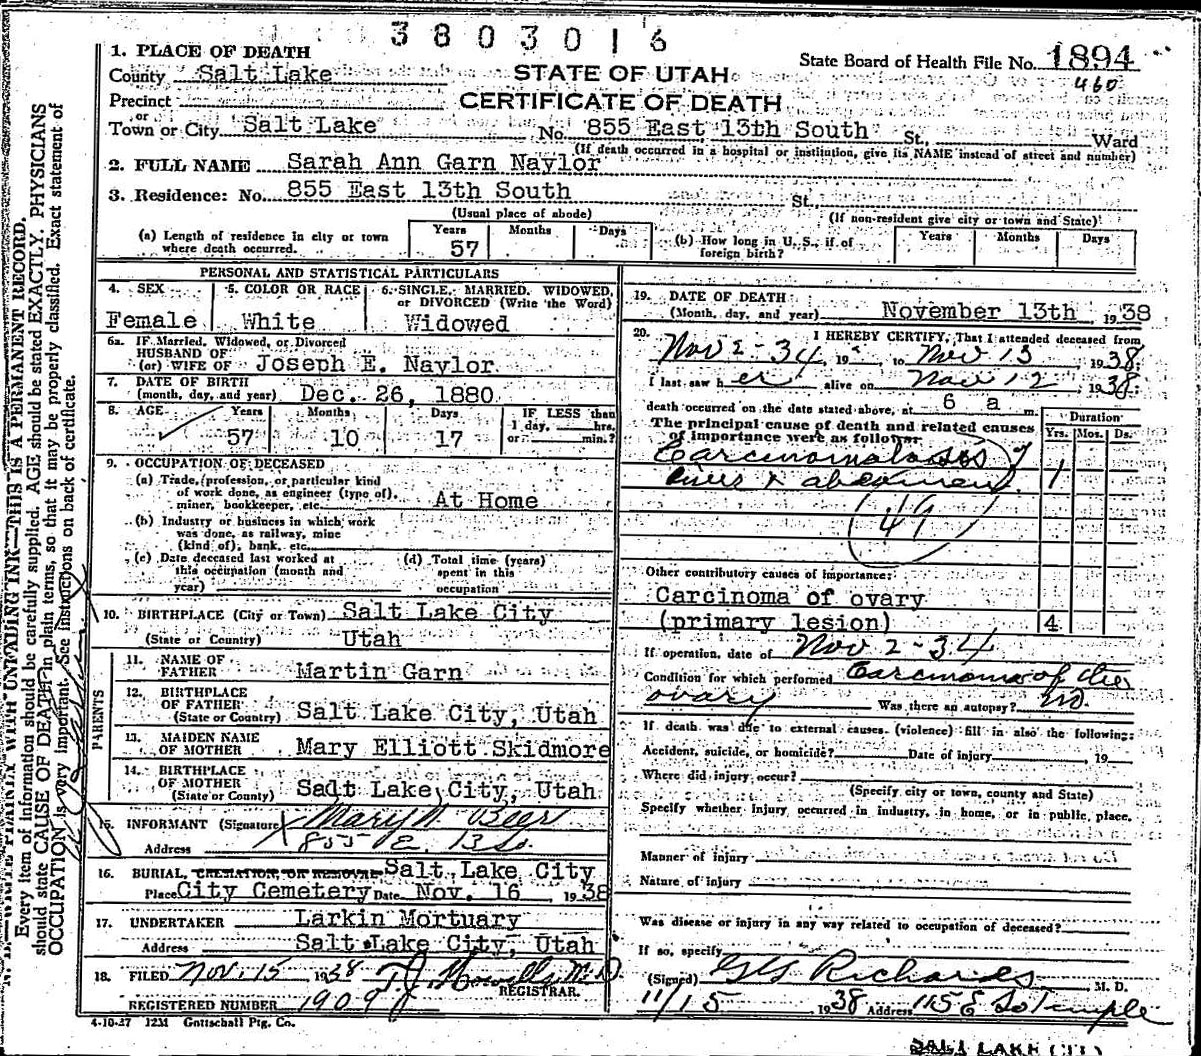 3803016
1. PLACE OF DEATH
County Salt Lake
STATE OF UTAH
State Board of Health File No. 1894
460
Precinct
CERTIFICATE OF DEATH
or
Town or City Salt Lake No. 855 East 13th South St., Ward
(If death occurred in a hospital or institution, give its NAME instead of street and number)
2. FULL NAME Sarah Ann Garn Naylor
3. Residence: No. 855 East 13th South St.
(Usual place of abode) (If non-resident give city or town and State)
(a) Length of residence in city or town where death occurred. Years 57 Months Days
(b) How long in U. S., if of foreign birth? Years Months Days
PERSONAL AND STATISTICAL PARTICULARS
4. SEX Female
5. COLOR OR RACE White
6. SINGLE, MARRIED, WIDOWED, or DIVORCED (Write the Word) Widowed
6a. IF Married, Widowed, or Divorced
HUSBAND OF
(or) WIFE OF Joseph E. Naylor
7. DATE OF BIRTH
(month, day, and year) Dec. 26, 1880
8. AGE Years 57 Months 10 Days 17 IF LESS than 1 day, hrs. or min.?
9. OCCUPATION OF DECEASED
(a) Trade, profession, or particular kind
of work done, as engineer (type of),
miner, bookkeeper, etc. At Home
(b) Industry or business in which work
was done, as railway, mine
(kind of), bank, etc.
(c) Date deceased last worked at
this occupation (month and
year)
(d) Total time (years)
spent in this
occupation
10. BIRTHPLACE (City or Town) Salt Lake City
(State or Country) Utah
PARENTS
11. NAME OF
FATHER Martin Garn
12. BIRTHPLACE
OF FATHER
(State or Country) Salt Lake City, Utah
13. MAIDEN NAME
OF MOTHER Mary Elliott Skidmore
14. BIRTHPLACE
OF MOTHER
(State or County) Salt Lake City, Utah
15. INFORMANT (Signature) X Mary N. Beer
Address 855 E. 13 So.
16. BURIAL, CREMATION, OR REMOVAL Salt Lake City
Place City Cemetery Date Nov. 16 1938
17. UNDERTAKER Larkin Mortuary
Address Salt Lake City, Utah
18. FILED Nov. 15 1938 T J Howells M.D.
REGISTRAR.
REGISTERED NUMBER 1909
4-10-27 12M Gottschall Ptg. Co.
19. DATE OF DEATH
(Month, day, and year) November 13th 1938
20. I HEREBY CERTIFY, That I attended deceased from
Nov 2-34, 19 , to Nov 13 1938
I last saw her alive on Nov 12 1938
death occurred on the date stated above, at 6 a m.
The principal cause of death and related causes
of importance were as follows:
Duration
Yrs. Mos. Ds.
Carcinomatosis of
liver & abdomen 1
49
Other contributory causes of importance:
Carcinoma of ovary
(primary lesion) 4
If operation, date of Nov 2-34
Condition for which performed Carcinoma of the
ovary Was there an autopsy? no.
If death was due to external causes (violence) fill in also the following:
Accident, suicide, or homicide? Date of injury , 19
Where did injury occur?
(Specify city or town, county and State)
Specify whether injury occurred in industry, in home, or in public place.
Manner of injury
Nature of injury
Was disease or injury in any way related to occupation of deceased?
If so, specify
(Signed) G G Richards M. D.
11/15 1938 Address 115 E So Temple
SALT LAKE CITY
WRITE PLAINLY WITH UNFADING INK—THIS IS A PERMANENT RECORD.
Every item of information should be carefully supplied. AGE should be stated EXACTLY. PHYSICIANS
should state CAUSE OF DEATH in plain terms, so that it may be properly classified. Exact statement of
OCCUPATION is very important. See instructions on back of certificate.